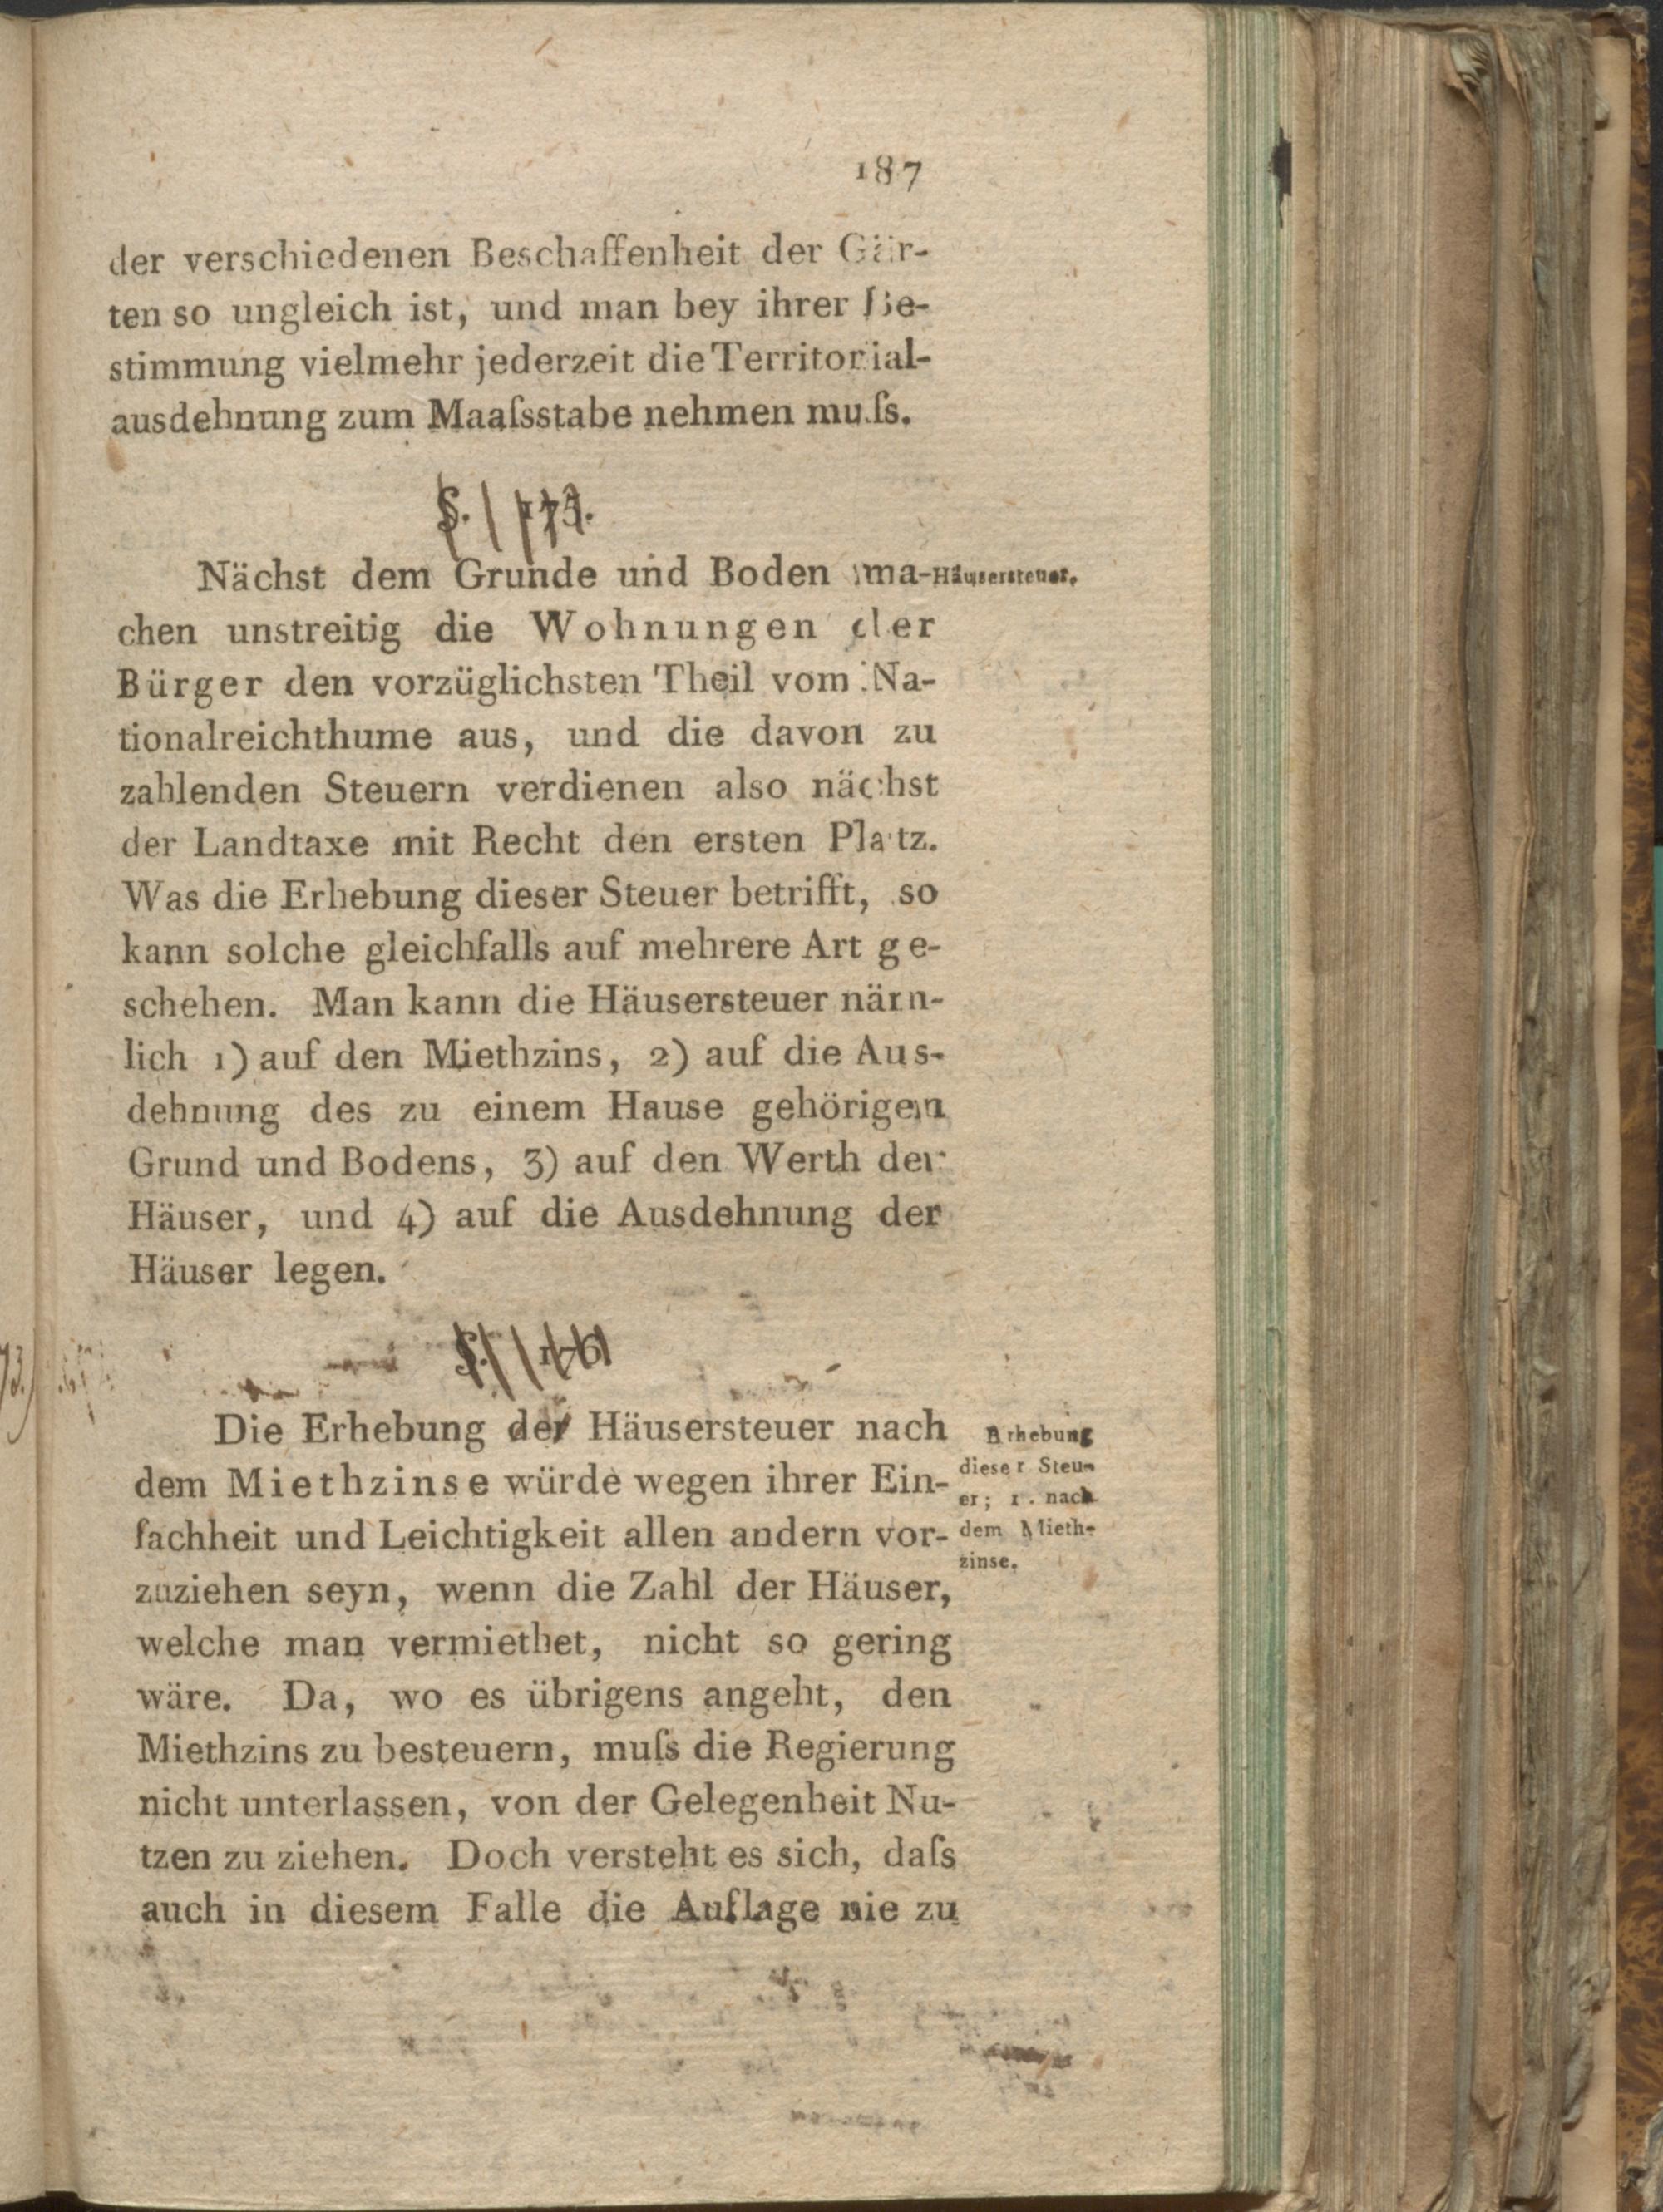 187
der verschiedenen Beschaffenheit der Gär-
ten so ungleich ist, und man bey ihrer Be-
stimmung vielmehr jederzeit die Territorial-
ausdehnung zum Maaſsstabe nehmen muſs.
§. 175.
Nächst dem Grunde und Boden ma-
Häusersteuer.
chen unstreitig die Wohnungen der
Bürger den vorzüglichsten Theil vom Na-
tionalreichthume aus, und die davon zu
zahlenden Steuern verdienen also nächst
der Landtaxe mit Recht den ersten Platz.
Was die Erhebung dieser Steuer betrifft, so
kann solche gleichfalls auf mehrere Art ge-
schehen. Man kann die Häusersteuer näm-
lich 1) auf den Miethzins, 2) auf die Aus-
dehnung des zu einem Hause gehörigen
Grund und Bodens, 3) auf den Werth der
Häuser, und 4) auf die Ausdehnung der
Häuser legen.
§. 176
Die Erhebung der Häusersteuer nach
dem Miethzinse würde wegen ihrer Ein-
fachheit und Leichtigkeit allen andern vor-
zuziehen seyn, wenn die Zahl der Häuser,
welche man vermiethet, nicht so gering
wäre. Da, wo es übrigens angeht, den
Miethzins zu besteuern, muſs die Regierung
nicht unterlassen, von der Gelegenheit Nu-
tzen zu ziehen. Doch versteht es sich, daſs
auch in diesem Falle die Auflage nie zu
Erhebung
dieser Steu-
er; 1. nach
dem Mieth-
zinse.